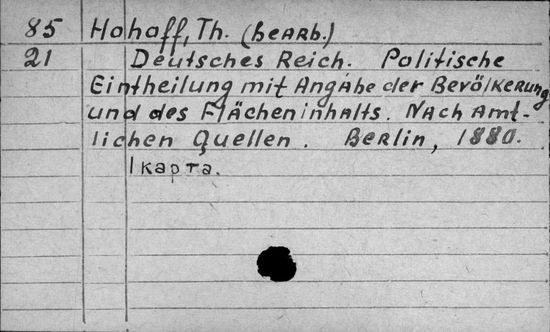 85 Hohoff, Th. (Bearb.)
21 Deutsches Reich. Politische
Eintheilung mit Angabe der Bevölkerung
und des Flächeninhalts. Nach Amt-
lichen Quellen. Berlin, 1880.
1 карта.